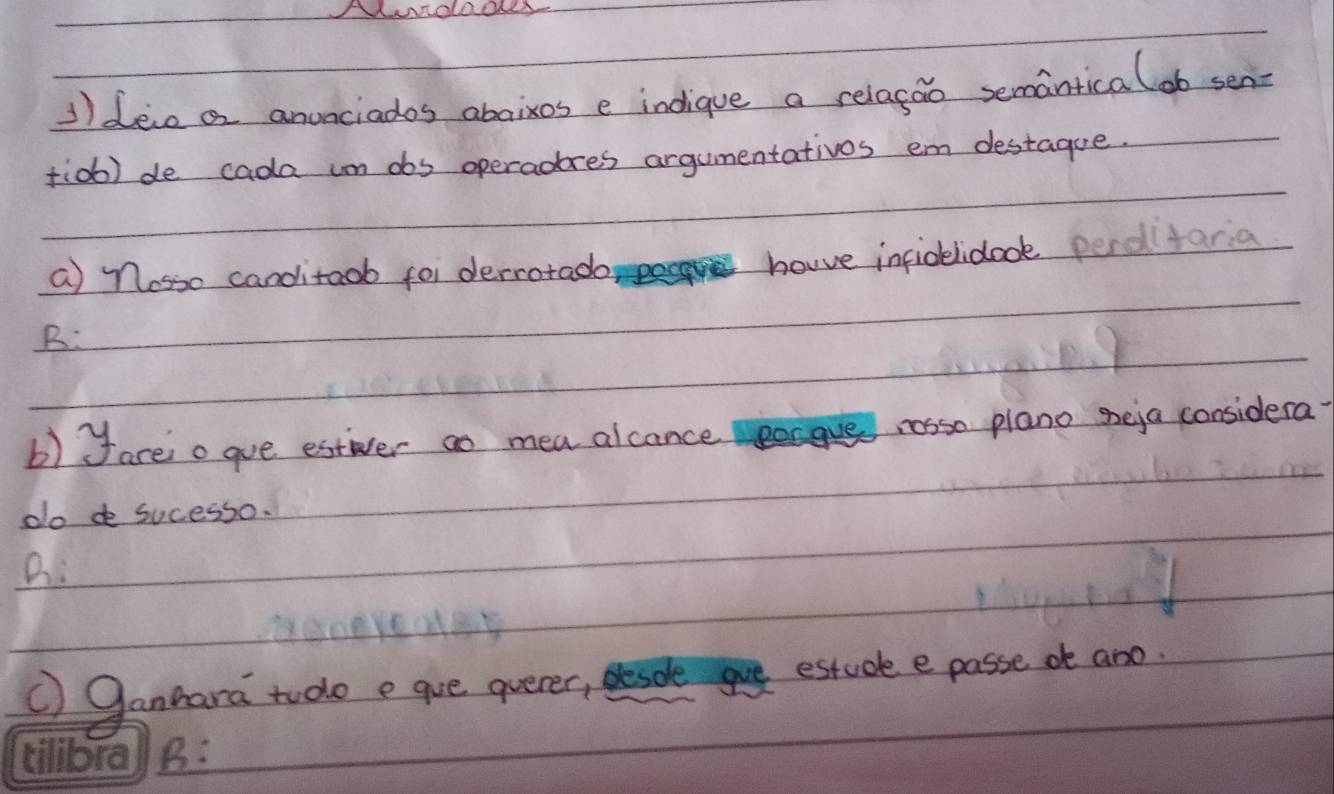 Atividades
1) Leia os anunciados abaixos e indique a relação semântica (do sen-
tido) de cada um dos operadores argumentativos em destaque.
a) Nosso canditado foi derrotado, porque houve infidelidade perditaria.
R:
b) Farei o que estiver ao meu alcance porque nosso plano seja considera-
do de sucesso.
R:
c) Ganhará tudo e que querer, desde que estude e passe de ano.
tilibra R: